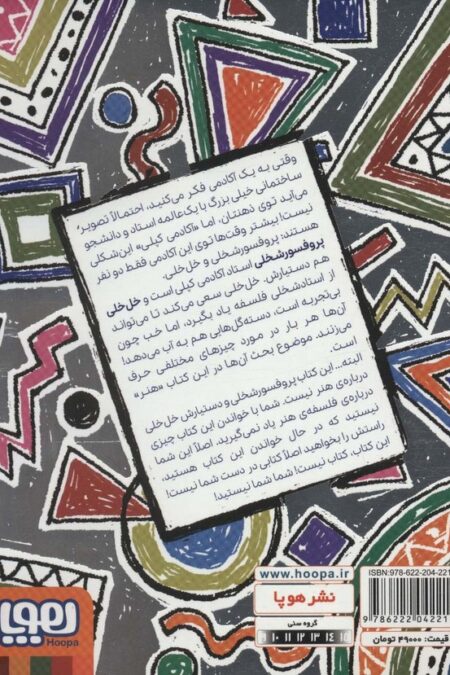 وقتی به یک آکادمی فکر می‌کنید، احتمالاً تصویرِ
ساختمانی خیلی بزرگ با یک عالمه استاد و دانشجو
می‌آید توی ذهنتان، اما «آکادمی کپلی» این‌شکلی
نیست! بیشتر وقت‌ها توی این آکادمی فقط دو نفر
هستند: پروفسور شخلی و خل‌خلی.
پروفسور شخلی استاد آکادمی کپلی است و خل‌خلی
هم دستیارش. خل‌خلی سعی می‌کند تا می‌تواند
از استاد شخلی فلسفه یاد بگیرد، اما خب چون
بی‌تجربه است، دسته‌گل‌هایی هم به آب می‌دهد!
آن‌ها هر بار در مورد چیزهای مختلفی حرف
می‌زنند. موضوع بحث آن‌ها در این کتاب «هنر»
است.
البته... این کتاب پروفسور شخلی و دستیارش خل‌خلی
درباره‌ی هنر نیست. شما با خواندن این کتاب چیزی
درباره‌ی فلسفه‌ی هنر یاد نمی‌گیرید. اصلاً این شما
نیستید که در حال خواندن این کتاب هستید.
راستش را بخواهید اصلاً کتابی در دست شما نیست!
این کتاب، کتاب نیست! شما شما نیستید!
www.hoopa.ir
نشر هوپا
گروه سنی
۹ ۱۰ ۱۱ ۱۲ ۱۳ ۱۴ ۱۵
ISBN:978-622-204-221
9 786222 04221
قیمت: ۴۹۰۰۰ تومان
هوپا
Hoopa